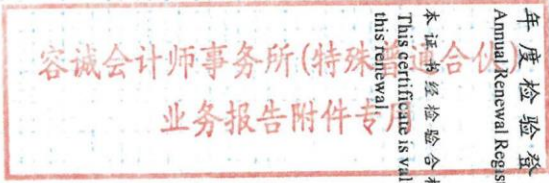 容诚会计师事务所(特殊普通合伙)
业务报告附件专用
年度检验登
Annual Renewal Regis
本证书经检验合格
This certificate is val
this renewal.